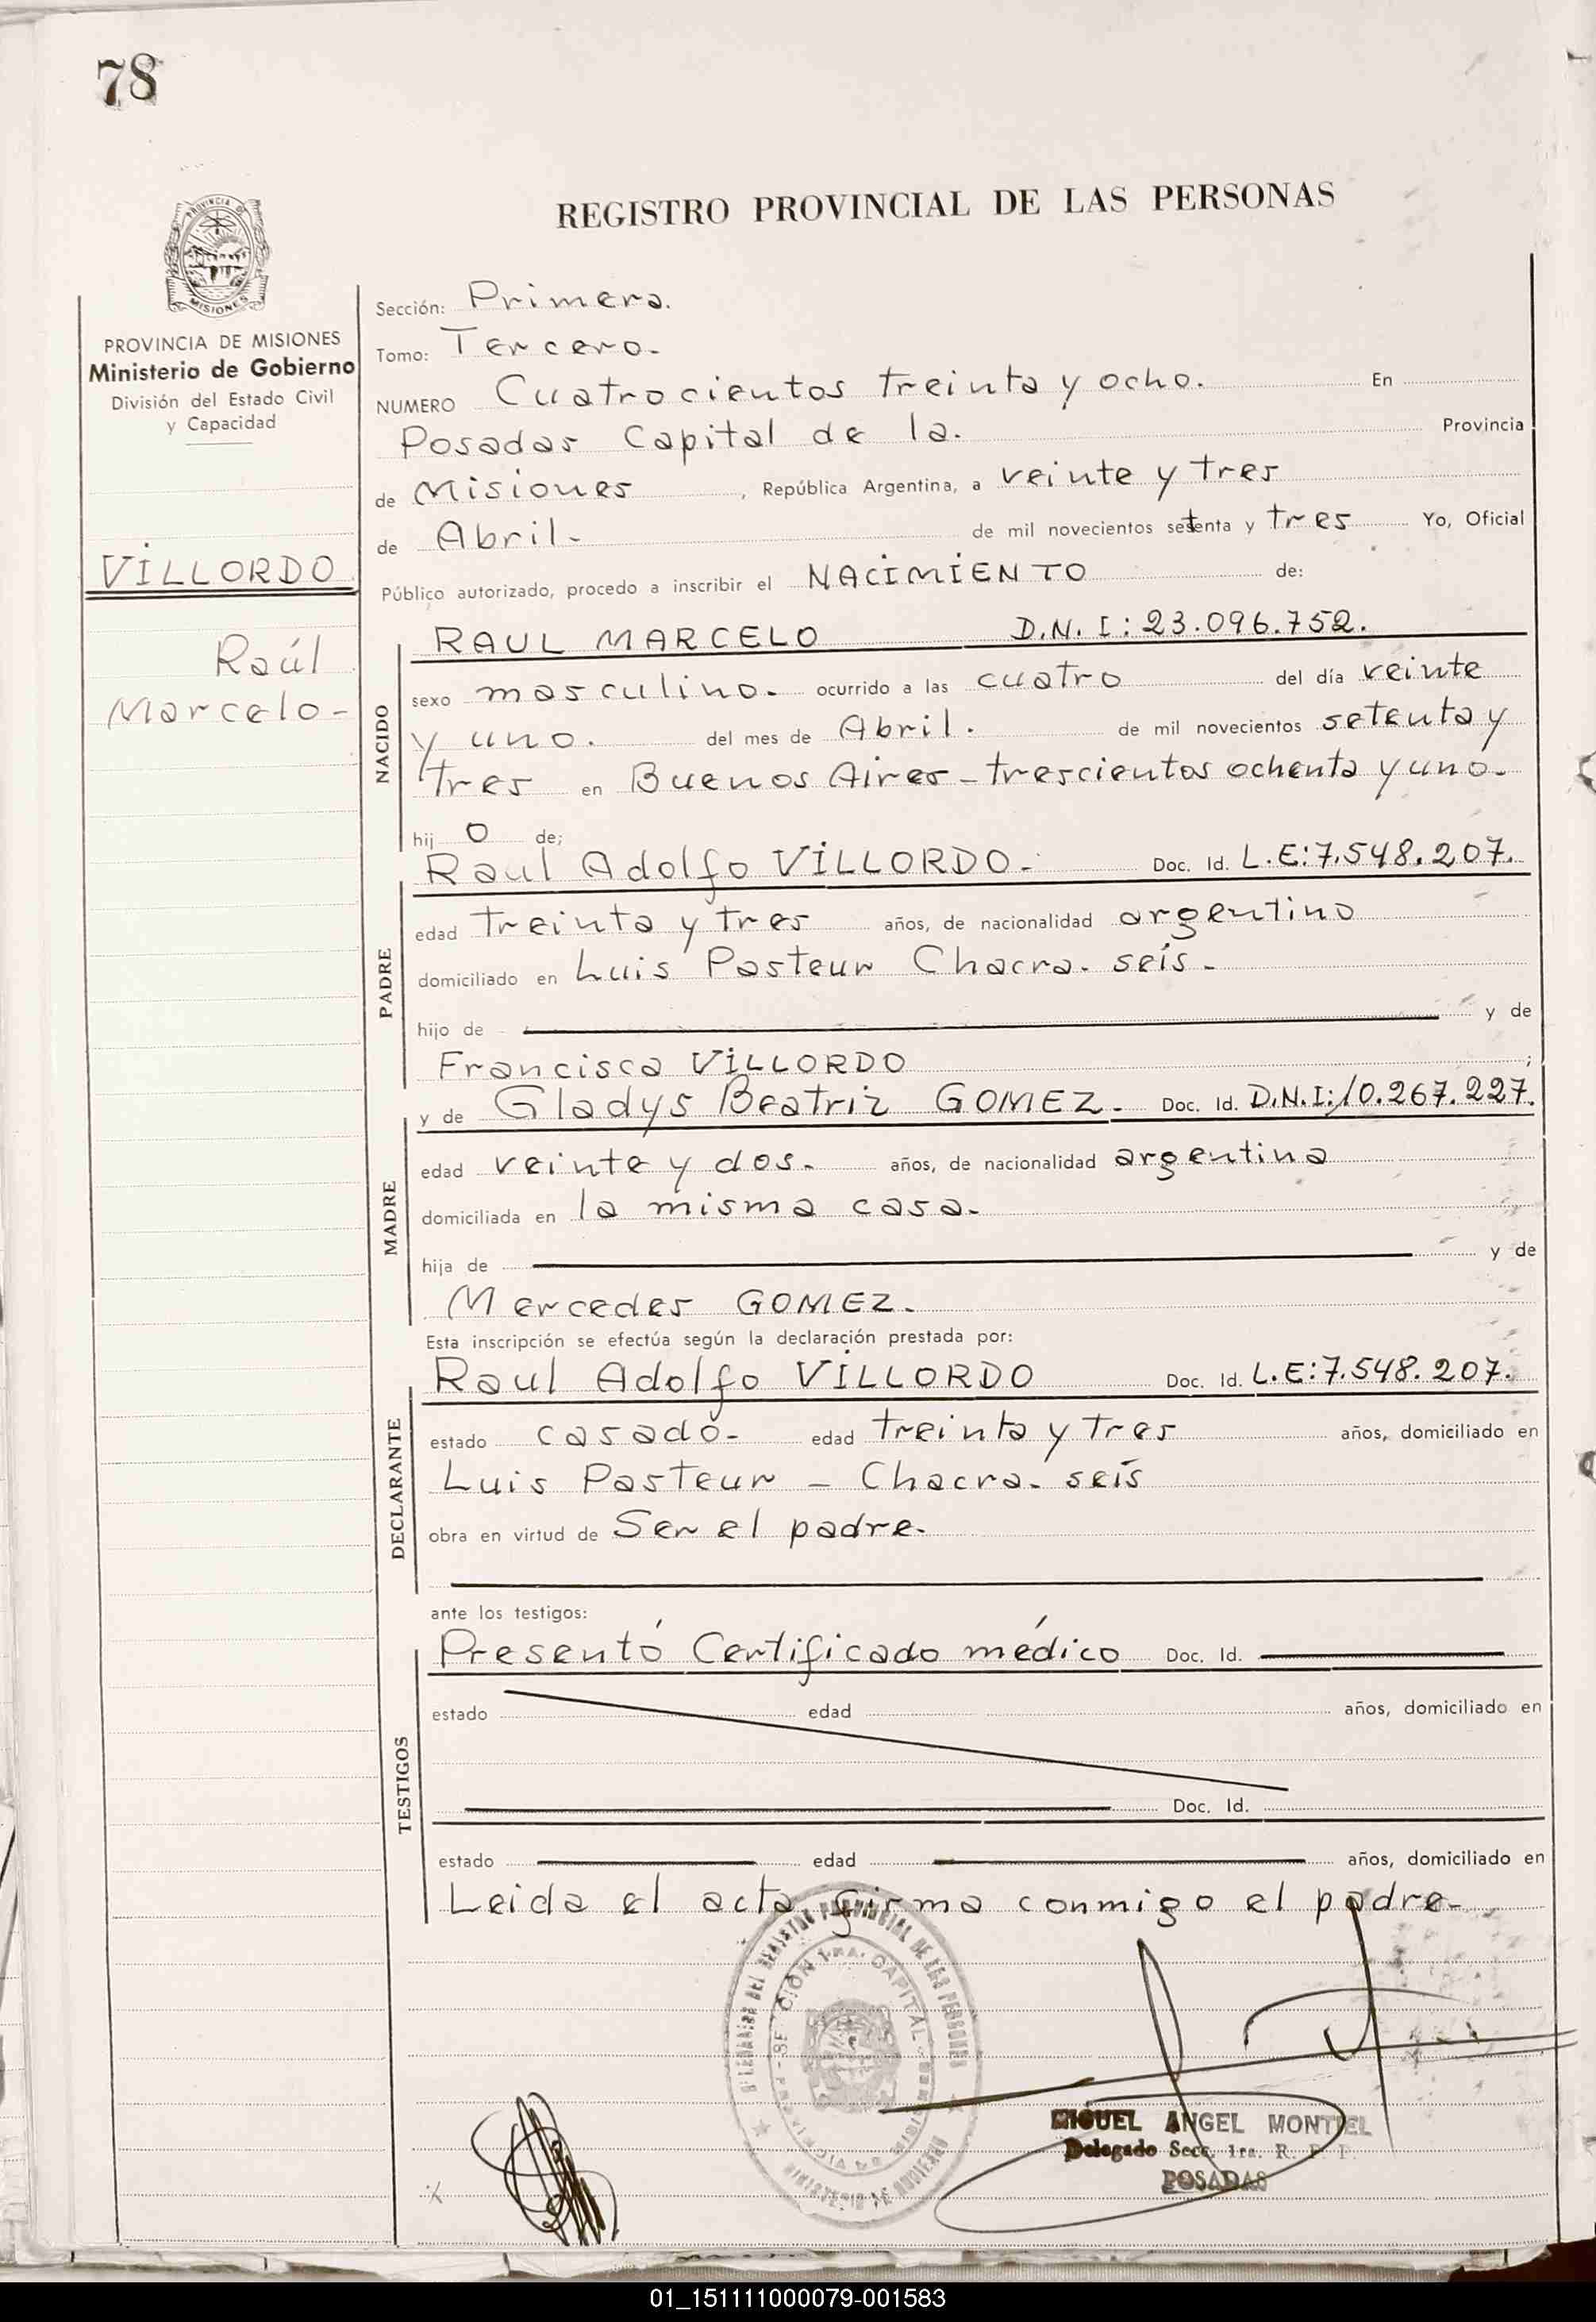 78
REGISTRO PROVINCIAL DE LAS PERSONAS
PROVINCIA DE
MISIONES
PROVINCIA DE MISIONES
Ministerio de Gobierno
División del Estado Civil
y Capacidad
VILLORDO
Raúl
Marcelo-
Sección: Primera.
Tomo: Tercero-
NUMERO Cuatrocientos treinta y ocho. En
Posadas Capital de la. Provincia
de Misiones, República Argentina, a veinte y tres
de Abril- de mil novecientos setenta y tres Yo, Oficial
Público autorizado, procedo a inscribir el NACIMIENTO de:
NACIDO
RAUL MARCELO D.N.I: 23.096.752.
sexo masculino. ocurrido a las cuatro del día veinte
y uno. del mes de Abril. de mil novecientos setenta y
tres en Buenos Aires - trescientos ochenta y uno-
hij o de;
PADRE
Raul Adolfo VILLORDO- Doc. Id. L.E:7.548.207.
edad treinta y tres años, de nacionalidad argentino
domiciliado en Luis Pasteur Chacra. seis-
hijo de y de
Francisca VILLORDO ;
MADRE
y de Gladys Beatriz GOMEZ- Doc. Id. D.N.I:10.267.227.
edad veinte y dos. años, de nacionalidad argentina
domiciliada en la misma casa-
hija de y de
Mercedes GOMEZ.
Esta inscripción se efectúa según la declaración prestada por:
DECLARANTE
Raul Adolfo VILLORDO Doc. Id. L.E:7.548.207.
estado casado- edad treinta y tres años, domiciliado en
Luis Pasteur - Chacra. seis
obra en virtud de Ser el padre-
ante los testigos:
TESTIGOS
Presentó Certificado médico Doc. Id.
estado edad años, domiciliado en
Doc. Id.
estado edad años, domiciliado en
Leida el acta firma conmigo el padre-
MIGUEL ANGEL MONTIEL
Delegado Secc. 1ra. R. P. P.
POSADAS
01_151111000079-001583